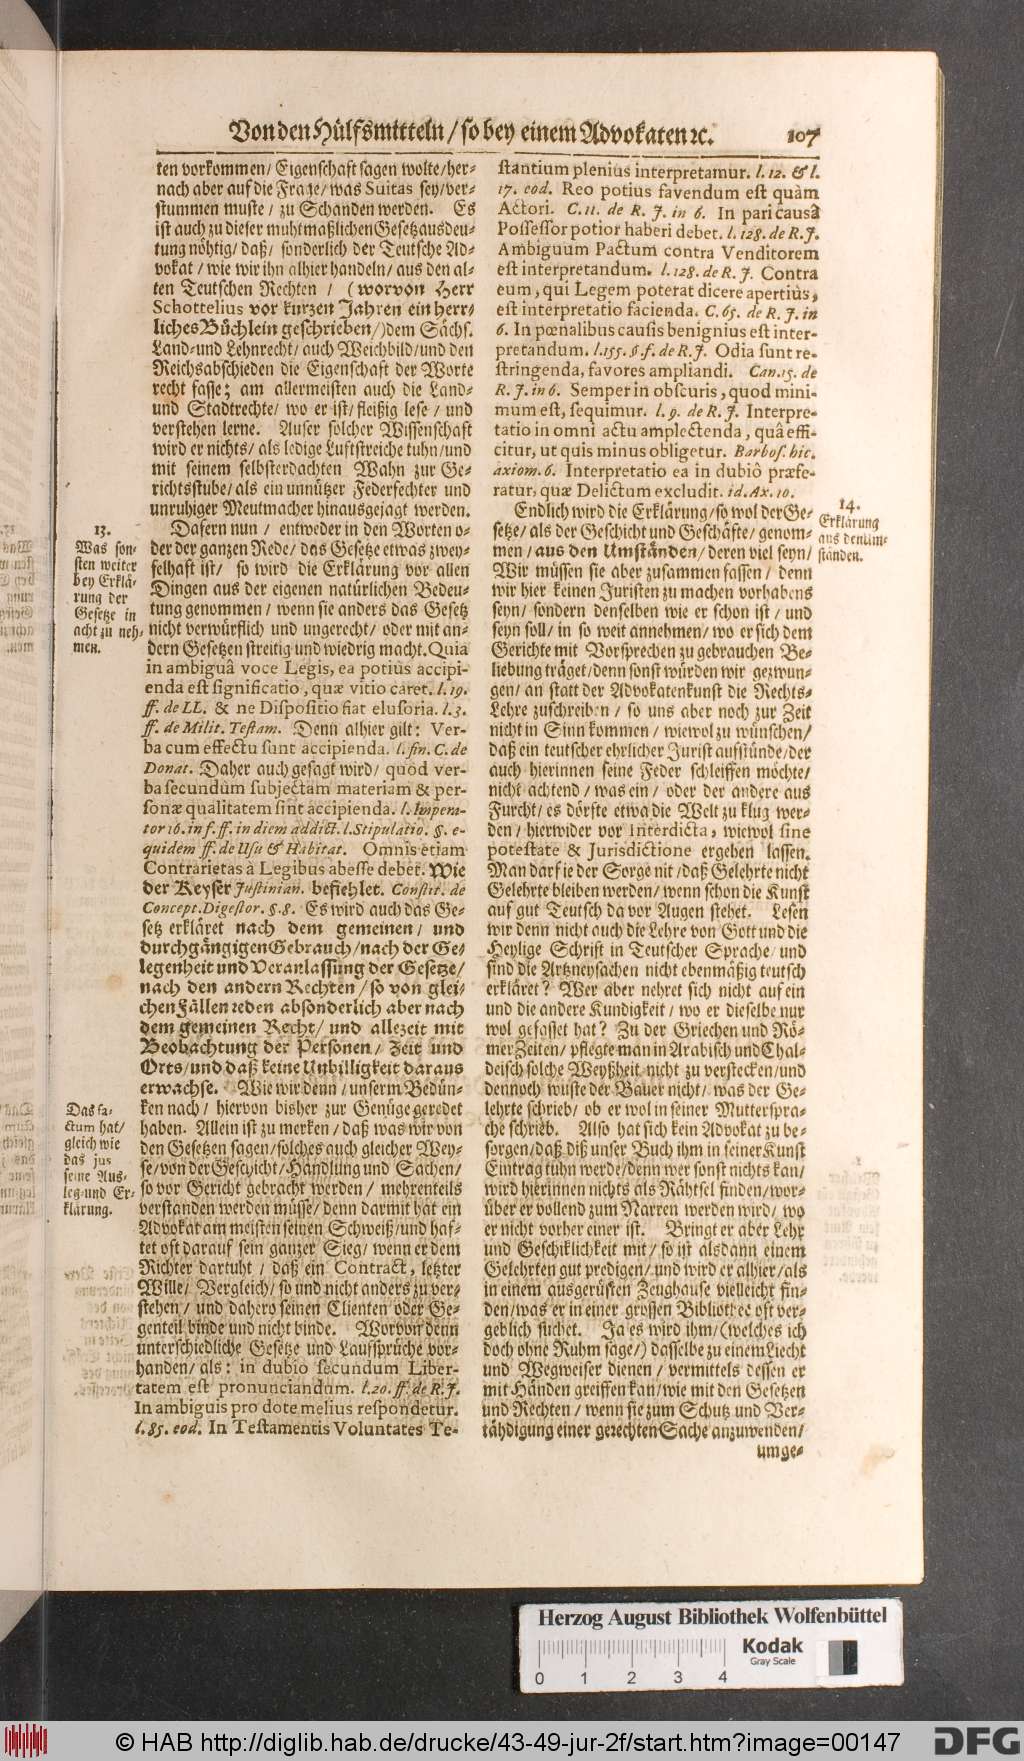 Von den Hülfsmitteln / so bey einem Advokaten ꝛc. 107
ten vorkommen / Eigenschaft sagen wolte / her-
nach aber auf die Frage / was Suitas sey / ver-
stummen muste / zu Schanden werden. Es
ist auch zu dieser muhtmaßlichen Gesetzausdeu-
tung nöhtig / daß / sonderlich der Teutsche Ad-
vokat / wie wir ihn alhier handeln / aus den al-
ten Teutschen Rechten / (worvon Herr
Schottelius vor kurzen Jahren ein herr-
liches Büchlein geschrieben /) dem Sächs.
Land- und Lehnrecht / auch Weichbild / und den
Reichsabschieden die Eigenschaft der Worte
recht fasse; am allermeisten auch die Land-
und Stadtrechte / wo er ist / fleißig lese / und
verstehen lerne. Auser solcher Wissenschaft
wird er nichts / als ledige Luftstreiche tuhn / und
mit seinem selbsterdachten Wahn zur Ge-
richtsstube / als ein unnützer Federfechter und
unruhiger Meutmacher hinausgejagt werden.
13.
Was son-
sten weiter
bey Erklä-
rung der
Gesetze in
acht zu neh-
men.
Dafern nun / entweder in den Worten o-
der der ganzen Rede / das Gesetze etwas zwey-
felhaft ist / so wird die Erklärung vor allen
Dingen aus der eigenen natürlichen Bedeu-
tung genommen / wenn sie anders das Gesetz
nicht verwürflich und ungerecht / oder mit an-
dern Gesetzen streitig und wiedrig macht. Quia
in ambiguâ voce Legis, ea potiùs accipi-
enda est significatio, quæ vitio caret. l. 19.
ff. de LL. & ne Dispositio fiat elusoria. l. 3.
ff. de Milit. Testam. Denn alhier gilt: Ver-
ba cum effectu sunt accipienda. l. fin. C. de
Donat. Daher auch gesagt wird / quod ver-
ba secundùm subjectam materiam & per-
sonæ qualitatem sint accipienda. l. Impera-
tor 16. in f. ff. in diem addict. l. Stipulatio. §. e-
quidem ff. de Usu & Habitat. Omnis etiam
Contrarietas à Legibus abesse debet. Wie
der Keyser Justinian. befiehlet. Constit. de
Concept. Digestor. §. 8. Es wird auch das Ge-
setz erkläret nach dem gemeinen / und
durchgängigen Gebrauch / nach der Ge-
legenheit und Veranlassung der Gesetze /
nach den andern Rechten / so von glei-
chen Fällen reden absonderlich aber nach
dem gemeinen Recht / und allezeit mit
Beobachtung der Personen / Zeit und
Orts / und daß keine Unbilligkeit daraus
erwachse. Wie wir denn / unserm Bedün-
ken nach / hiervon bisher zur Genüge geredet
haben. Allein ist zu merken / daß was wir von
den Gesetzen sagen / solches auch gleicher Wey-
se / von der Geschicht / Handlung und Sachen /
so vor Gericht gebracht werden / mehrenteils
verstanden werden müsse / denn darmit hat ein
Advokat am meisten seinen Schweiß / und haf-
tet oft darauf sein ganzer Sieg / wenn er dem
Richter dartuht / daß ein Contract, letzter
Wille / Vergleich / so und nicht anders zu ver-
stehen / und dahero seinen Clienten oder Ge-
genteil binde und nicht binde. Worvon denn
unterschiedliche Gesetze und Laufsprüche vor-
handen / als: in dubio secundum Liber-
tatem est pronunciandum. l. 20. ff. de R. J.
In ambiguis pro dote melius respondetur.
l. 85. eod. In Testamentis Voluntates Te-
Das fa-
ctum hat /
gleich wie
das jus
seine Aus-
leg- und Er-
klärung.
stantium plenius interpretamur. l. 12. & l.
17. eod. Reo potius favendum est quàm
Actori. C. 11. de R. J. in 6. In pari causâ
Possessor potior haberi debet. l. 128. de R. J.
Ambiguum Pactum contra Venditorem
est interpretandum. l. 128. de R. J. Contra
eum, qui Legem poterat dicere apertiùs,
est interpretatio facienda. C. 65. de R. J. in
6. In pœnalibus causis benignius est inter-
pretandum. l. 155. §. f. de R. J. Odia sunt re-
stringenda, favores ampliandi. Can. 15. de
R. J. in 6. Semper in obscuris, quod mini-
mum est, sequimur. l. 9. de R. J. Interpre-
tatio in omni actu amplectenda, quâ effi-
citur, ut quis minus obligetur. Barbos. hic.
axiom. 6. Interpretatio ea in dubiô præfe-
ratur, quæ Delictum excludit. id. Ax. 10.
14.
Erklärung
aus den Um-
ständen.
Endlich wird die Erklärung / so wol der Ge-
setze / als der Geschicht und Geschäfte / genom-
men / aus den Umständen / deren viel seyn /
Wir müssen sie aber zusammen fassen / denn
wir hier keinen Juristen zu machen vorhabens
seyn / sondern denselben wie er schon ist / und
seyn soll / in so weit annehmen / wo er sich dem
Gerichte mit Vorsprechen zu gebrauchen Be-
liebung träget / denn sonst würden wir gezwun-
gen / an statt der Advokatenkunst die Rechts-
Lehre zuschreiben / so uns aber noch zur Zeit
nicht in Sinn kommen / wiewol zu wünschen /
daß ein teutscher ehrlicher Jurist aufstünde / der
auch hierinnen seine Feder schleiffen möchte /
nicht achtend / was ein / oder der andere aus
Furcht / es dörfte etwa die Welt zu klug wer-
den / hierwider vor Interdicta, wiewol sine
potestate & Jurisdictione ergehen lassen.
Man darf je der Sorge nit / daß Gelehrte nicht
Gelehrte bleiben werden / wenn schon die Kunst
auf gut Teutsch da vor Augen stehet. Lesen
wir denn nicht auch die Lehre von Gott und die
Heylige Schrift in Teutscher Sprache / und
sind die Artzneysachen nicht ebenmäßig teutsch
erkläret? Wer aber nehret sich nicht auf ein
und die andere Kundigkeit / wo er dieselbe nur
wol gefasset hat? Zu der Griechen und Rö-
mer Zeiten / pflegte man in Arabisch und Chal-
deisch solche Weyßheit nicht zu verstecken / und
dennoch wuste der Bauer nicht / was der Ge-
lehrte schrieb / ob er wol in seiner Mutterspra-
che schrieb. Also hat sich kein Advokat zu be-
sorgen / daß diß unser Buch ihm in seiner Kunst
Eintrag tuhn werde / denn wer sonst nichts kan /
wird hierinnen nichts als Rähtsel finden / wor-
über er vollend zum Narren werden wird / wo
er nicht vorher einer ist. Bringt er aber Lehr
und Geschiklichkeit mit / so ist alsdann einem
Gelehrten gut predigen / und wird er alhier / als
in einem ausgerüsten Zeughause vielleicht fin-
den / was er in einer grossen Bibliothec oft ver-
geblich suchet. Ja es wird ihm / (welches ich
doch ohne Ruhm sage /) dasselbe zu einem Liecht
und Wegweiser dienen / vermittels dessen er
mit Händen greiffen kan / wie mit den Gesetzen
und Rechten / wenn sie zum Schutz und Ver-
tähdigung einer gerechten Sache anzuwenden /
umge-
Herzog August Bibliothek Wolfenbüttel
Kodak
Gray Scale
0 1 2 3 4
© HAB http://diglib.hab.de/drucke/43-49-jur-2f/start.htm?image=00147
DFG